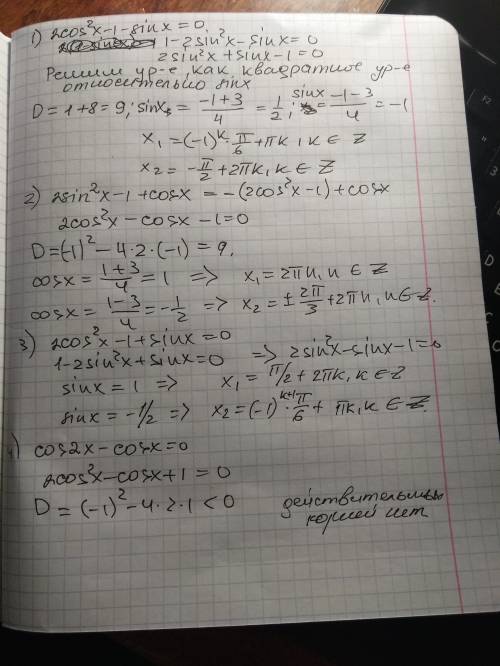 1) 2cos²x-1-sinx=0
1-2sin²x-sinx=0
2sin²x+sinx-1=0
Решим ур-е, как квадратное ур-е
относительно sinx
D=1+8=9; sinx₁ = (-1+3)/4 = 1/2; sinx = (-1-3)/4 = -1
x₁ = (-1)^k · π/6 + πk, k ∈ Z
x₂ = -π/2 + 2πk, k ∈ Z
2) 2sin²x-1+cosx = -(2cos²x-1)+cosx
2cos²x-cosx-1=0
D=(-1)²-4·2·(-1)=9.
cosx = (1+3)/4 = 1 => x₁ = 2πn, n ∈ Z
cosx = (1-3)/4 = -1/2 => x₂ = ± 2π/3 + 2πn, n ∈ Z.
3) 2cos²x-1+sinx=0
1-2sin²x+sinx=0 => 2sin²x-sinx-1=0
sinx = 1 => x₁ = π/2 + 2πk, k ∈ Z
sinx = -1/2 => x₂ = (-1)^k+1 · π/6 + πk, k ∈ Z.
4) cos2x-cosx=0
2cos²x-cosx+1=0
D=(-1)²-4·2·1<0 действительных
корней нет